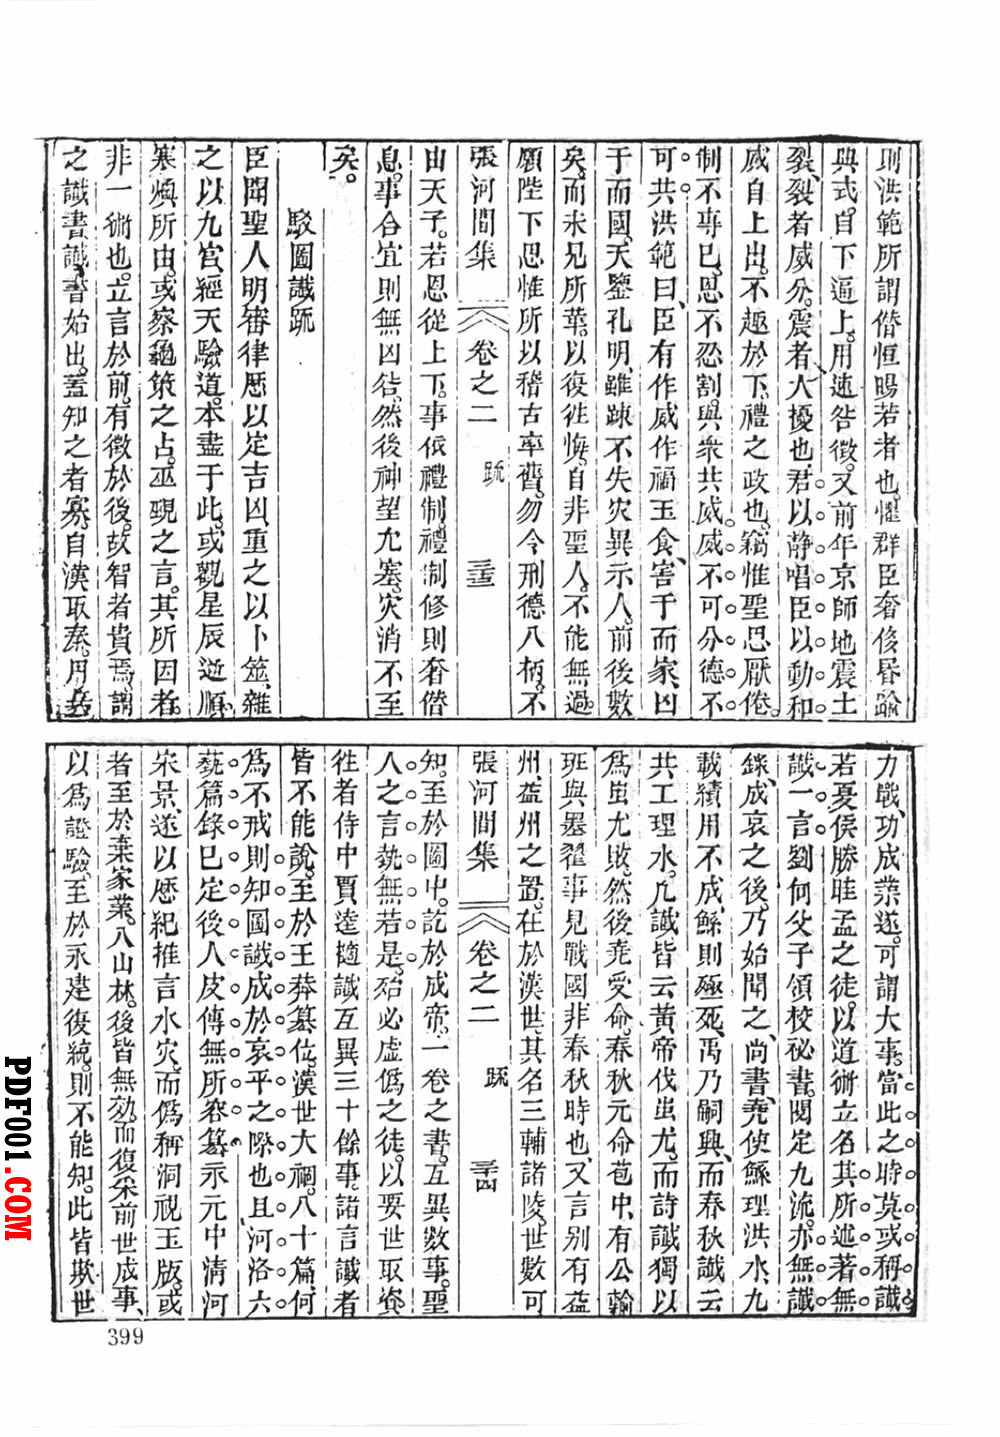 則洪範所謂僭恒暘若者也懼群臣奢侈昏踰
典式。自下逼上。用速咎徵。又前年京師地震土
裂。裂者威分。震者人擾也。君以静唱臣以動和
威自上出。不趣於下。禮之政也。竊惟聖思厭倦。
制不專巳。恩不忍割。與衆共威。威不可分德不
可共洪範曰、臣有作威作福玉食、害于而家、凶
于而國。天鑒孔明、雖踈不失灾異示人。前後數
矣。而未見所革。以復徃悔。自非聖人。不能無過。
願陛下思惟所以稽古率舊。勿令刑德八柄。不
張河間集 卷之二 疏 三十三
由天子。若恩從上下。事依禮制。禮制修則奢僭
息。事合宜則無凶咎。然後神望允塞。灾消不至
矣。
駁圖讖疏
臣聞聖人明審律厯以定吉凶。重之以卜筮、雜
之以九宫、經天驗道。本盡于此。或觀星辰逆順。
寒燠所由。或察龜策之占。巫覡之言。其所因者。
非一術也。立言於前。有徵於後。故智者貴焉。謂
之讖書。讖書始出。蓋知之者寡。自漢取秦。用兵
力戰、功成業遂。可謂大事。當此之時莫或稱讖
若夏侯勝眭孟之徒。以道術立名其所述著無
讖一言劉向父子領校祕書。閱定九流。亦無讖
錄、成哀之後、乃始聞之、尚書、堯使鯀理洪水、九
載績用不成、鯀則殛死、禹乃嗣興、而春秋讖云
共工理水。凡讖皆云黄帝伐蚩尤。而詩讖獨以
爲蚩尤敗。然後堯受命。春秋元命苞中、有公輸
班與墨翟事見戰國、非春秋時也、又言别有益
州、益州之置。在於漢世。其名三輔諸陵。世數可
張河間集 卷之二 疏 三十四
知。至於圖中。訖於成帝。一卷之書。互異數事。聖
人之言埶無若是。殆必虛僞之徒。以要世取資
徃者侍中賈逵擿讖互異三十餘事。諸言讖者
皆不能說。至於王莽簒位。漢世大禍。八十篇、何
爲不戒則知圖讖成於哀平之際也且河洛六
藝篇錄巳定後人皮傳無所容簒。永元中清河
宋景、遂以厯紀推言水灾。而僞稱洞視玉版。或
者至於棄家業。入山林。後皆無効。而復采前世成事、
以爲證驗、至於永建復統。則不能知。此皆欺世
399
PDF001.COM